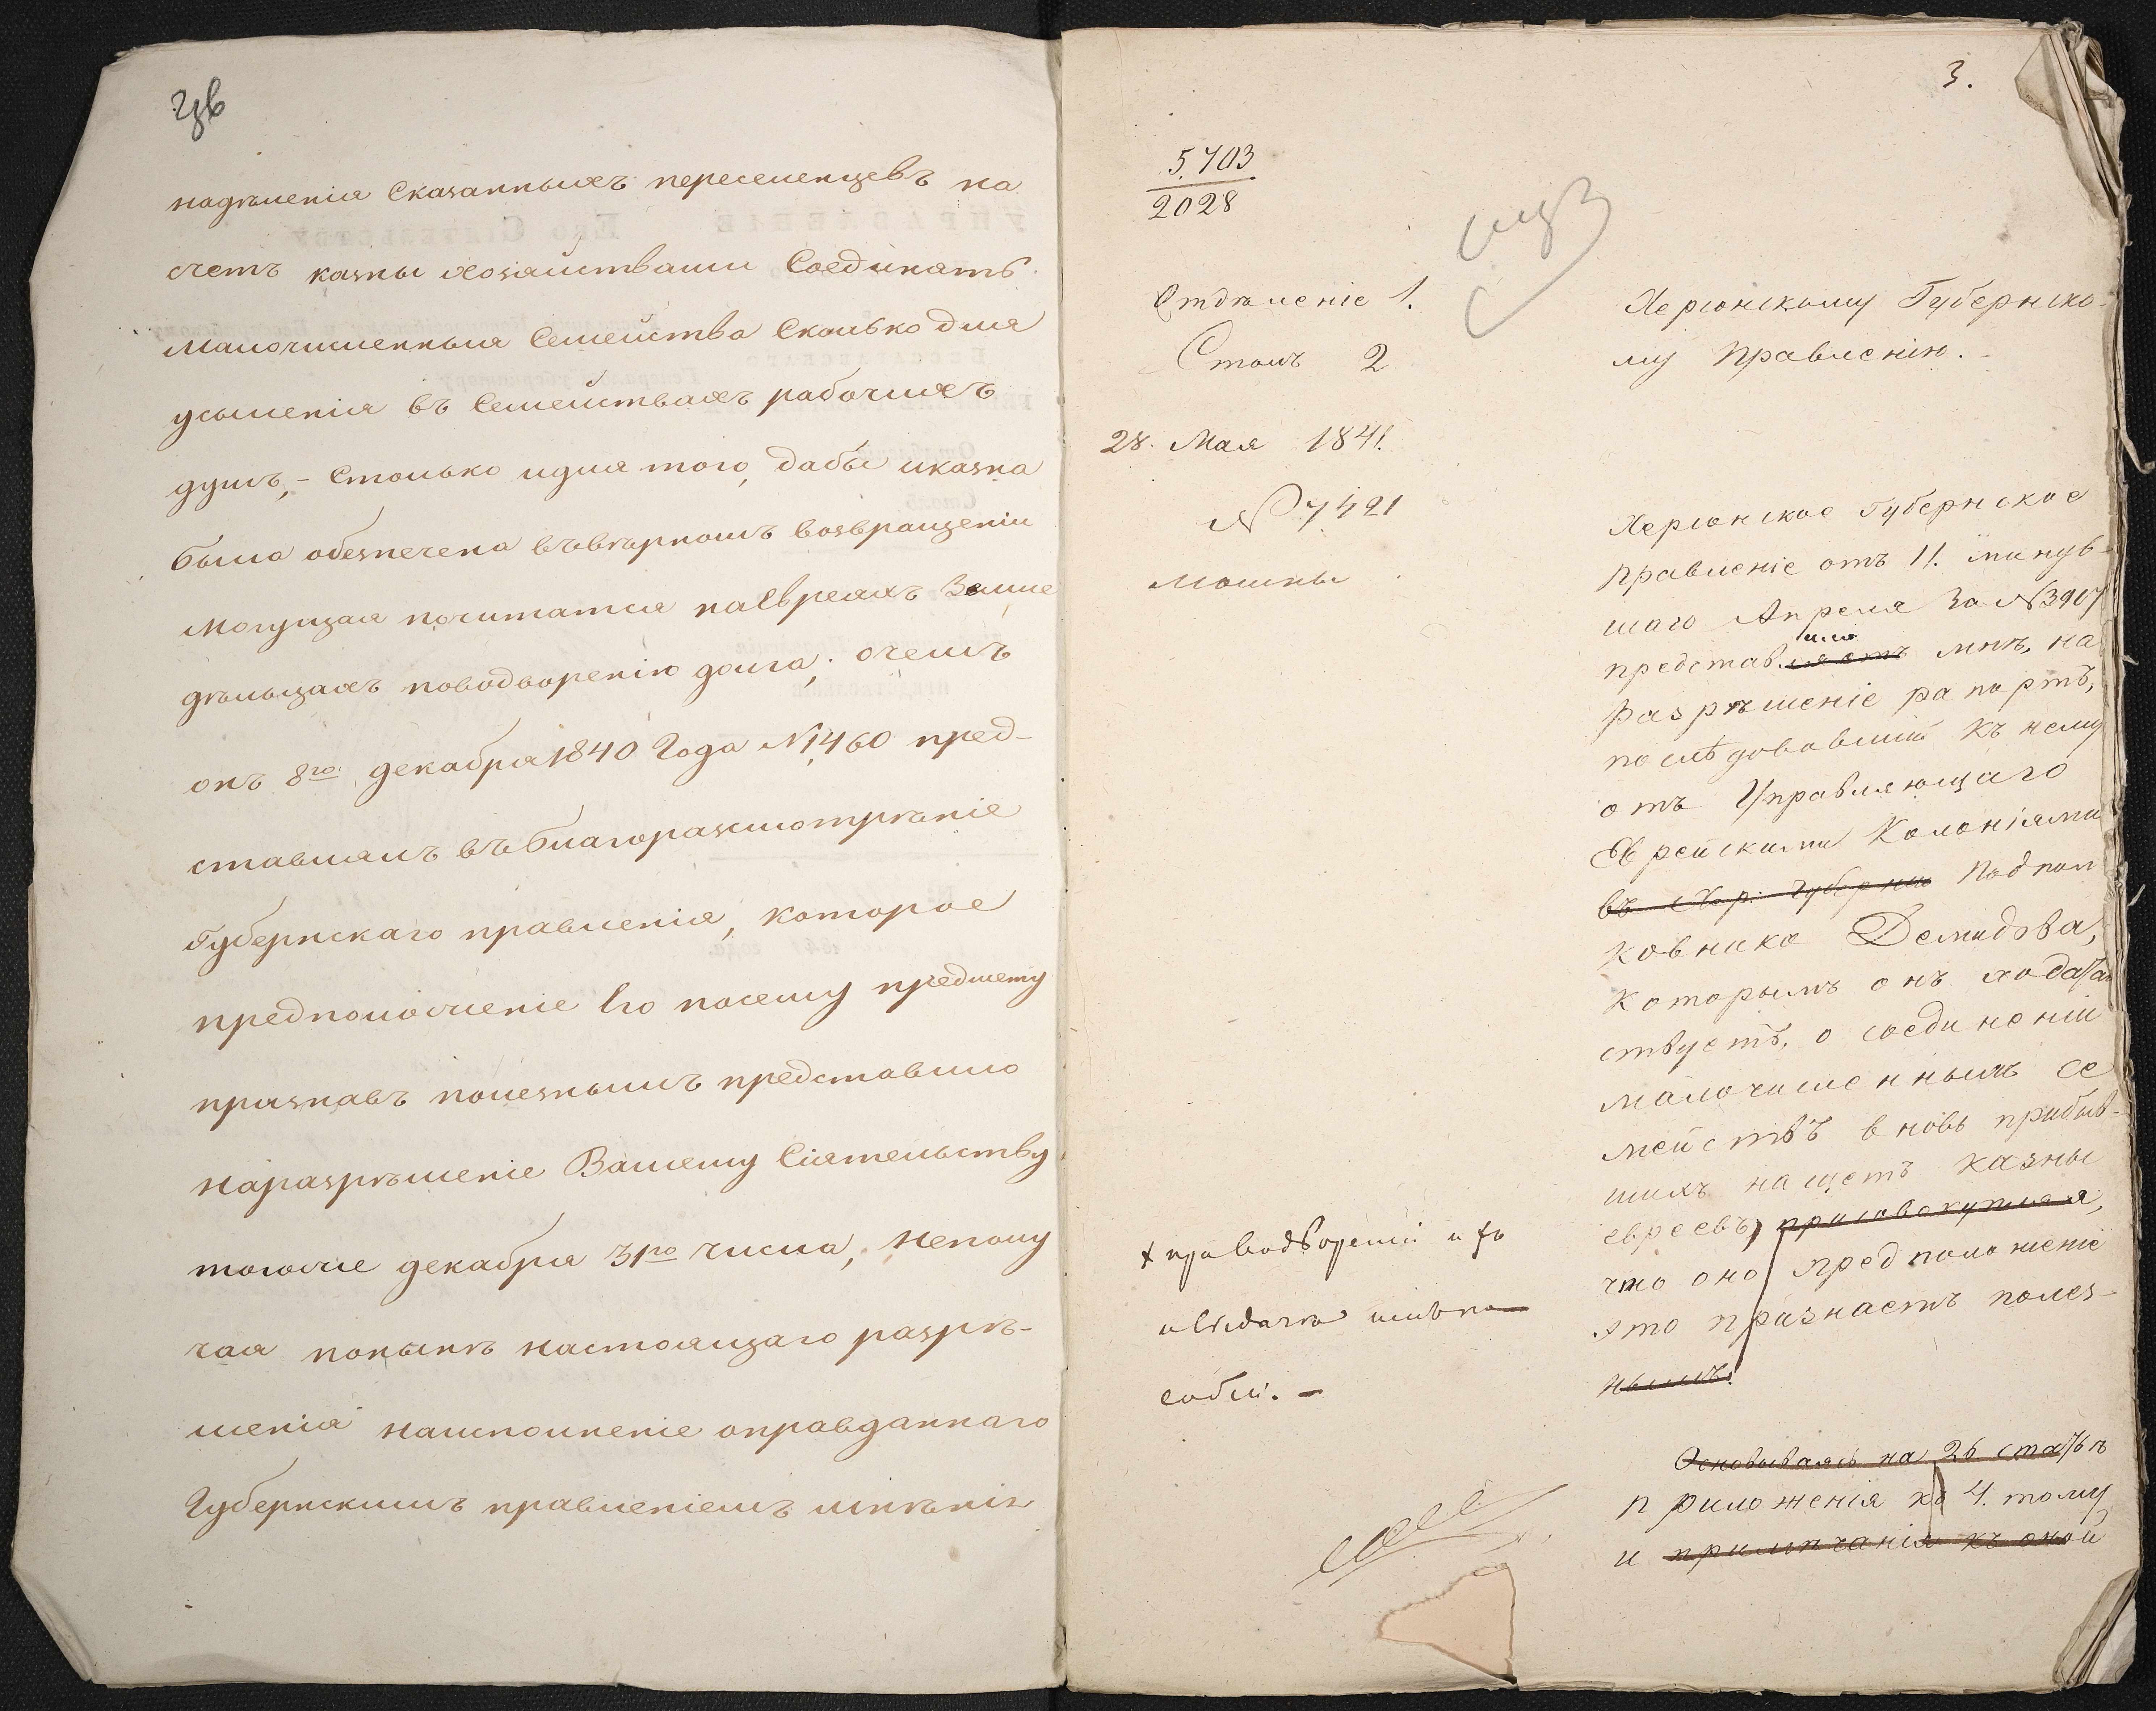 надѣленія Сказанныхъ переселенцевъ на
счетъ казны хозяйствами Соединять
малочисленныя Семейства Сколько для
усиленія въ Семействахъ рабочихъ
душъ, - Столько идля того, дабы иказна
была обезпечена въвѣрномъ возвращеніи
могущая почитатся наЕвреяхъ Земле
дѣльцахъ поводворенію долга; очемъ
онъ 8го декабря 1840 Года №1460 пред-
ставлялъ въБлагоразсмотрѣніе
Губернскаго правленія, которое
предположеніе Его посему предмету
признавъ полезнымъ представило
наразрѣшеніе Вашему Сіятельству
тогоже декабря 31го числа, неполу
чая понынѣ настоящаго разрѣ-
шенія наисполненіе оправданнаго
Губернскимъ правленіемъ мнѣнія
3.
5.703
2028
Отдѣленіе 1.
Столъ 2
28. Мая 1841.
№ 7421
Мошны
Херсонскому Губернско-
му Правленію.
Херсонское Губернское
Правленіе отъ 11. минув-
шаго Апреля за №3907
представляетъ ило мнѣ, на
разрѣшеніе рапортъ,
послѣдовавшій къ нему
отъ Управляющаго
Еврейскими Колоніями
въ Хер: губерніи Подпол
ковника Демидова,
которымъ онъ ходатай
ствуетъ, о соединеніи
малочисленныхъ се
мействъ вновь прибыв-
шихъ нащетъ казны
евреевъ, присовокупляя,
что оно предположеніе
это признаетъ полез-
нымъ.
x при водвореніи ихъ
ивыдачѣ имъ по
собій. -
Основываясь на 26 статьѣ
приложенія къ 4. тому
и примѣчанія къ оной